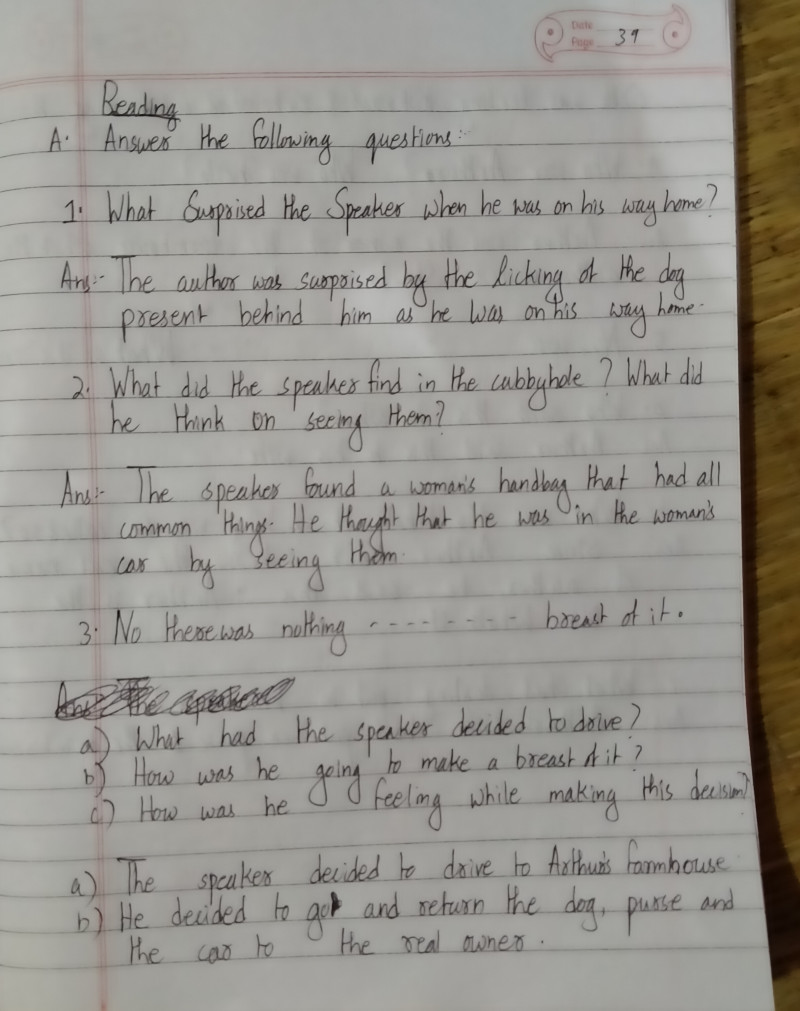 Date
Page 39
Reading
A. Answer the following questions:-
1. What Surprised the Speaker when he was on his way home?
Ans:- The author was surprised by the licking of the dog
present behind him as he was on his way home.
2. What did the speaker find in the cubbyhole? What did
he think on seeing them?
Ans:- The speaker found a woman's handbag that had all
common things. He thought that he was in the woman's
car by seeing them.
3. No there was nothing -------- breast of it.
a) What had the speaker decided to drive?
b) How was he going to make a breast of it?
c) How was he feeling while making this decision?
a) The speaker decided to drive to Arthur's farmhouse
b) He decided to go and return the dog, purse and
the car to the real owner.